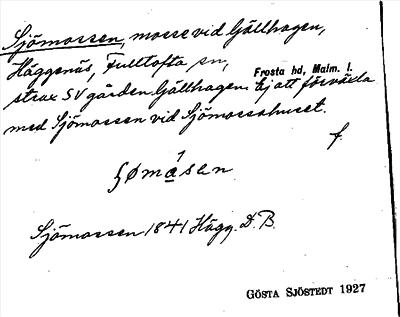 Sjömossen, mosse vid Gällhagen,
Häggenäs, Fulltofta sn,
Frosta hd, Malm. l.
strax SV gården Gällhagen. Ej att förväxla
med Sjömossen vid Sjömossahuset.
f.
Sjömossen 1841 Hägg. D. B.
GÖSTA SJÖSTEDT 1927